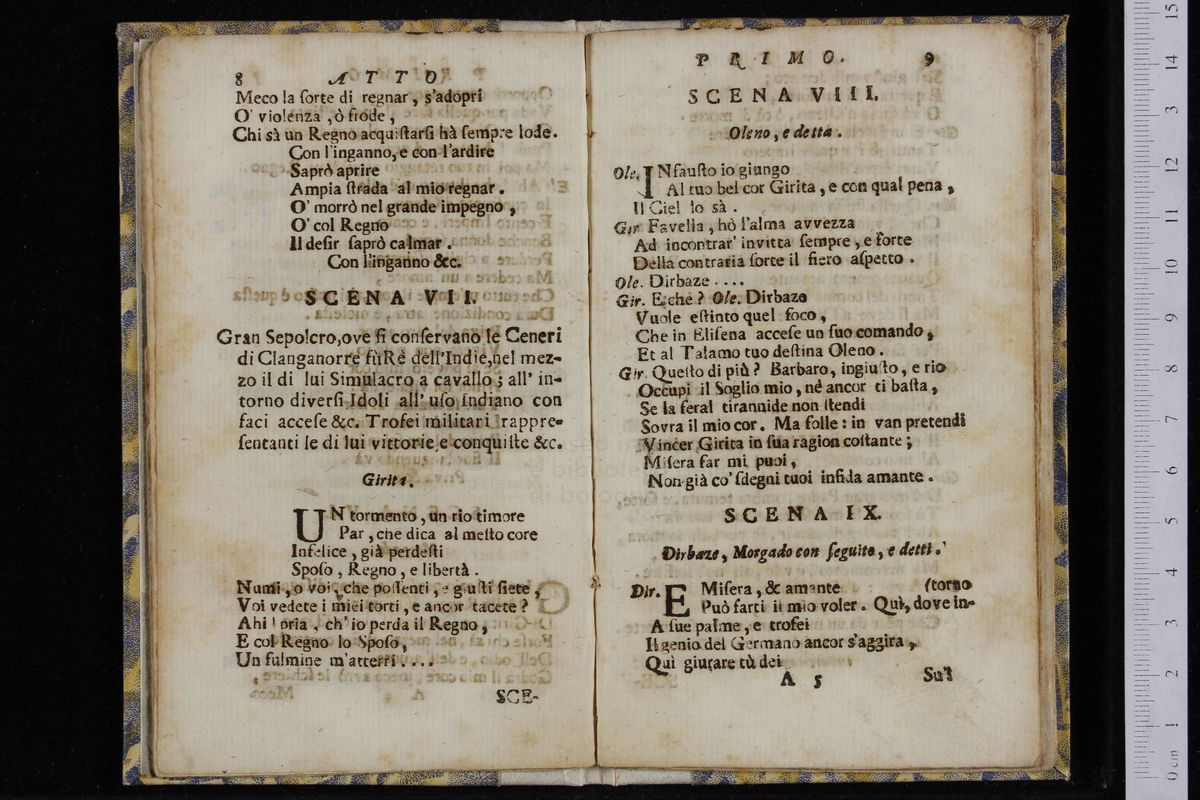 8 ATTO
Meco la ſorte di regnar, s'adopri
O' violenza, ò frode,
Chi sà un Regno acquiſtarſi hà ſempre lode.
Con l'inganno, e con l'ardire
Saprò aprire
Ampia ſtrada al mio regnar.
O' morrò nel grande impegno,
O' col Regno
Il deſir ſaprò calmar.
Con l'inganno &c.
SCENA VII.
Gran Sepolcro, ove ſi conſervano le Ceneri
di Clanganorre fù Rè dell'Indie, nel mez-
zo il di lui Simulacro a cavallo; all' in-
torno diverſi Idoli all' uſo Indiano con
faci acceſe &c. Trofei militari rappre-
ſentanti le di lui vittorie, e conquiſte &c.
Girita.
UN tormento, un rio timore
Par, che dica al meſto core
Infelice, già perdeſti
Spoſo, Regno, e libertà.
Numi, o voi, che poſſenti, e giuſti ſiete,
Voi vedete i miei torti, e ancor tacete?
Ahi! pria, ch'io perda il Regno,
E col Regno lo Spoſo,
Un fulmine m'atterri....
SCE-
PRIMO. 9
SCENA VIII.
Oleno, e detta.
Ole. INfauſto io giungo
Al tuo bel cor Girita, e con qual pena,
Il Ciel lo sà.
Gir. Favella, hò l'alma avvezza
Ad incontrar' invitta ſempre, e forte
Della contraria ſorte il fiero aſpetto.
Ole. Dirbaze....
Gir. E che? Ole. Dirbaze
Vuole eſtinto quel foco,
Che in Eliſena acceſe un ſuo comando,
Et al Talamo tuo deſtina Oleno.
Gir. Queſto di più? Barbaro, ingiuſto, e rio
Occupi il Soglio mio, nè ancor ti baſta,
Se la feral tirannide non ſtendi
Sovra il mio cor. Ma folle: in van pretendi
Vincer Girita in ſua ragion coſtante;
Miſera far mi puoi,
Non già co' ſdegni tuoi infida amante.
SCENA IX.
Dirbaze, Morgado con ſeguito, e detti.
Dir. E Miſera, & amante (torno
Può farti il mio voler. Quì, dove in-
A ſue palme, e trofei
Il genio del Germano ancor s'aggira,
Quì giurare tù dei
A 5 Sul